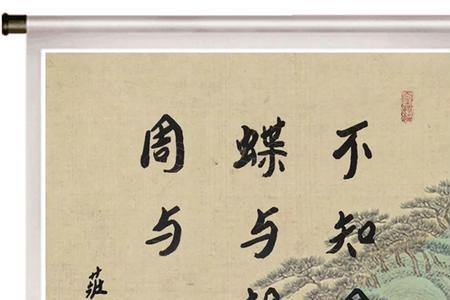 不知
蝶与
周与